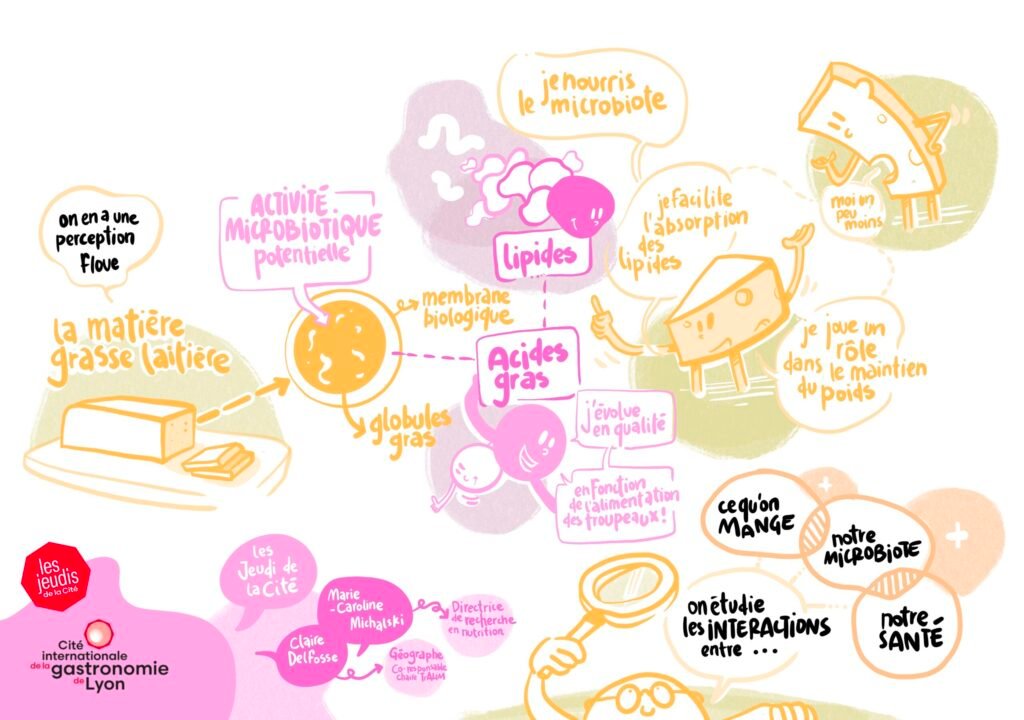 je nourris
le microbiote
on en a une
perception
floue
ACTIVITÉ
MICROBIOTIQUE
potentielle
je facilite
l'absorption
des
lipides
moi un
peu
moins
lipides
la matière
grasse laitière
membrane
biologique
Acides
gras
globules
gras
je joue un
rôle
dans le maintien
du poids
j'évolue
en qualité
en fonction
de l'alimentation
des troupeaux !
ce qu'on
MANGE
notre
MICROBIOTE
notre
SANTÉ
on étudie
les INTERACTIONS
entre ...
les
jeudis
de la Cité
Cité
internationale
de la gastronomie
de Lyon
Les
Jeudi de
la Cité
Marie
-Caroline
Michalski
Directrice
de recherche
en nutrition
Claire
Delfosse
Géographe
Co-responsable
chaire